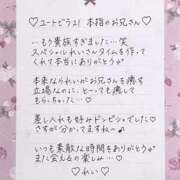 ♡ユートピラス! 本指のお兄さん♡
…もう貴族すぎました…笑
スペシャルれいさんタイムを作って
くれて本当にありがとう♡
本来なられいがお兄さんを癒す
立場なのに、とーっても癒して
もらっちゃった…♡
差し入れも好みドンピシャでした♡
さすが分かってますねぇ~♪
いつも素敵な時間をありがとう♡
また会えるの楽しみ…♡
♡れい♡